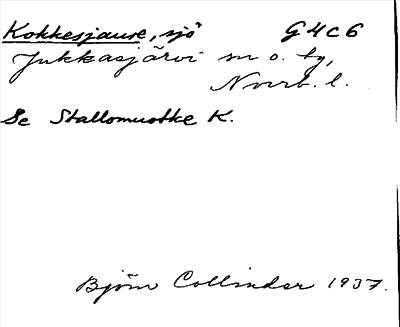 Kokkesjaure, sjö G4c6
Jukkasjärvi sn o. tg,
Norrb. l.
Se Stallomuotke K.
Björn Collinder 1937.